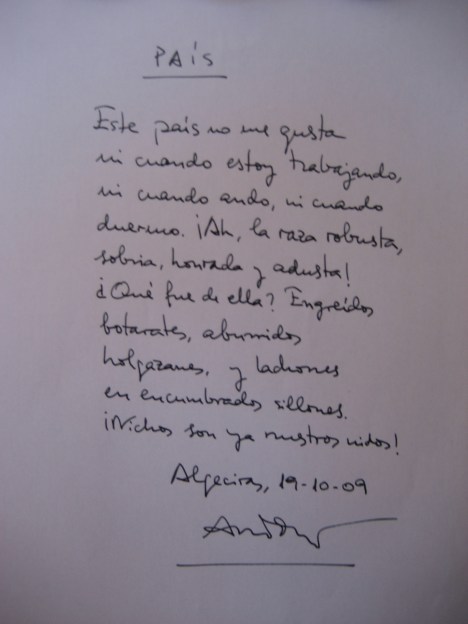 PAÍS
Este país no me gusta
ni cuando estoy trabajando,
ni cuando ando, ni cuando
duermo. ¡Ah, la raza robusta,
sobria, honrada y adusta!
¿Qué fue de ella? Engreídos
botarates, aburridos
holgazanes, y ladrones
en encumbrados sillones.
¡Nichos son ya nuestros nidos!
Algeciras, 19-10-09